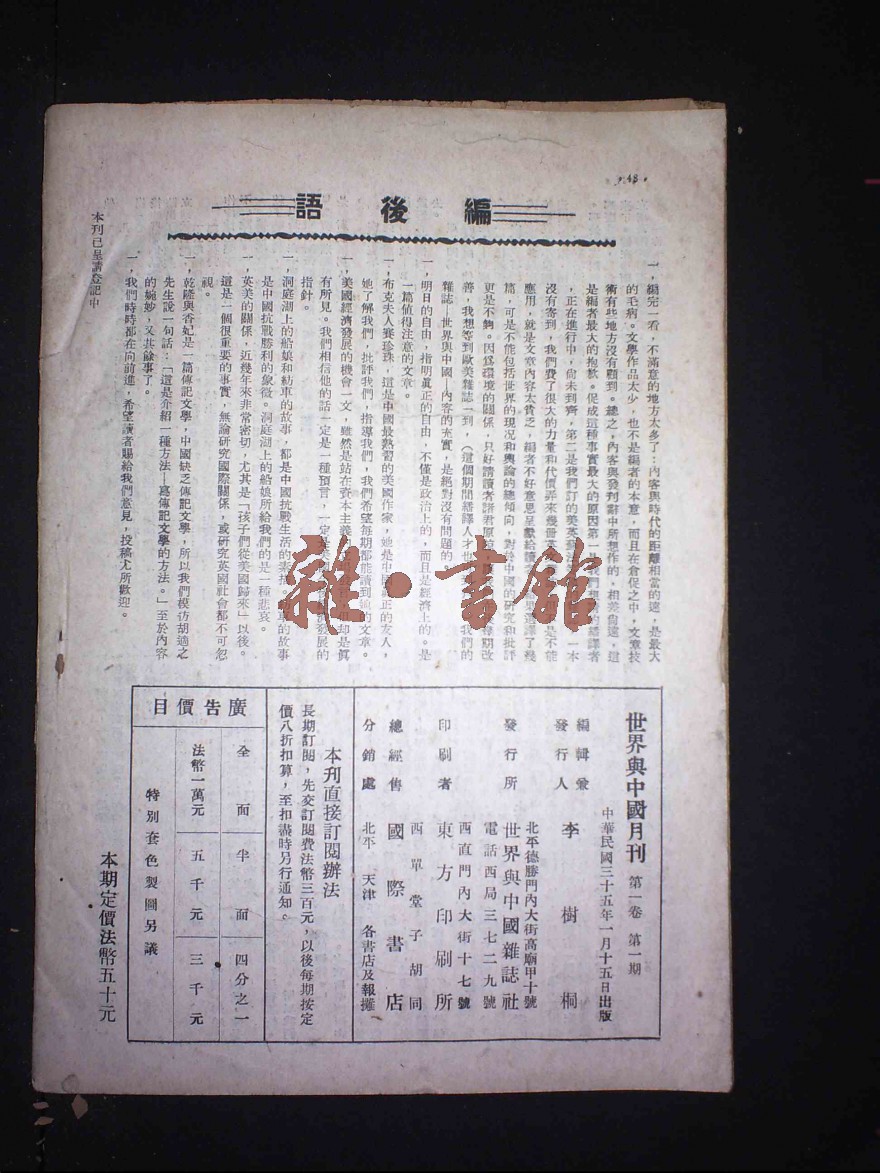 編後語
一，編完一看，不滿意的地方太多了：內容與時代的距離相當的遠，是最大
的毛病。文學作品太少，也不是編者的本意，而且在倉促之中，文章技
術有些地方沒有顧到。總之，內容與發刊辭中所想作的，相差尙遠，這
是編者最大的抱歉。促成這種事實最大的原因第一是我們想
，正在進行中，尙未到齊，第二是我們訂的美英
沒有寄到，我們費了很大的力量和代價弄來幾冊
應用，就是文章內容太貴乏，編者不好意思呈獻給讀
篇，可是不能包括世界的現況和輿論的總傾向，對於中國的研究和批評
更是不夠。因爲環境的關係，只好請讀者諸君原
善，我想等到歐美雜誌一到，（這個期間繙譯人才也
雜誌—世界與中國—內容的充實，是絕對沒有問題的。
一，明日的自由，指明眞正的自由，不僅是政治上的，而且是經濟上的。是
一篇值得注意的文章。
一，布克夫人賽珍珠，這是中國最熟習的美國作家，她是中國眞正的友人，
她了解我們，批評我們，指導我們，我們希望每期都能讀到她的文章。
一，美國經濟發展的機會一文，雖然是站在資本主義
有所見。我們相信他的話一定是一種預言，一定是
指針。
一，洞庭湖上的船娘和紡車的故事，都是中國抗戰生活的素描。紡車的故事
是中國抗戰勝利的象徵。洞庭湖上的船娘所給我們的是一種悲哀。
一，英美的關係，近幾年來非常密切，尤其是「孩子們從美國歸來」以後。
這是一個很重要的事實，無論研究國際關係，或研究英國社會都不可忽
視。
一，乾隆與香妃是一篇傳記文學，中國缺乏傳記文學，所以我們模仿胡適之
先生說一句話：「這是介紹一種方法—寫傳記文學的方法。」至於內容
的婉妙，又其餘事了。
一，我們時時都在向前進，希望讀者賜給我們意見，投稿尤所歡迎。
本刊已呈請登記中
世界與中國月刊 第一卷 第一期
中華民國三十五年一月十五日出版
編輯兼發行人 李樹桐
發行所 世界與中國雜誌社
北平德勝門內大街高廟甲十號
電話西局三七二九號
印刷者 東方印刷所
西直門內大街十七號
西單堂子胡同
總經售 國際書店
分銷處 北平 天津 各書店及報攤
本刊直接訂閱辦法
長期訂閱，先交訂閱費法幣三百元，以後每期按定
價八折扣算，至扣盡時另行通知。
廣告價目
全面 半面 四分之一
法幣一萬元 五千元 三千元
特別套色製圖另議
本期定價法幣五十元
雜·書館